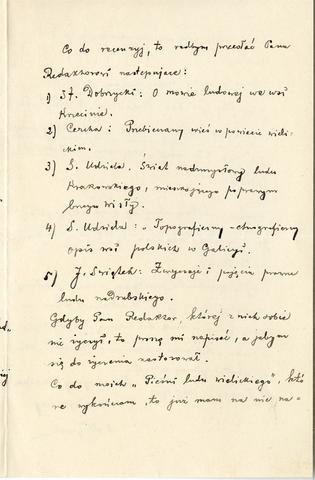 Co do recenzyj, to radbym przesłać Panu
Redaktorowi następujące:
1) St. Dobrzycki: O mowie ludowej we wsi
Krzęcinie.
2) Cercha: Przebieczany wieś w powiecie wieli-
ckim.
3) S. Udziela. Świat nadzmysłowy ludu
krakowskiego, mieszkającego po prawym
brzegu Wisły.
4) S. Udziela: „Topograficzny-etnograficzny
opis wsi polskich w Galicyi.
5) J. Świętek: Zwyczaje i pojęcia prawne
ludu nadrabskiego.
Gdyby Pan Redaktor, której z nich sobie
nie życzył, to proszę mi napisać, a jabym
się do życzenia zastosował.
Co do moich „Pieśni ludu wielickiego", któ
re wykończam, to już mam na nie na-